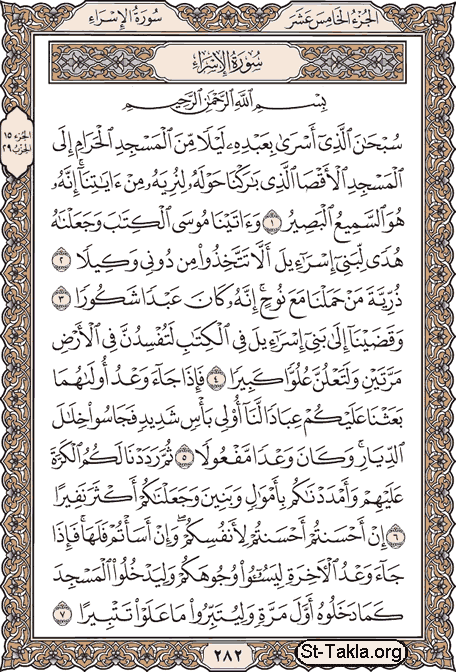 سُورَةُ الإِسْرَاءِ
الجُزءُ الخَامِسَ عَشَرَ
سُورَةُ الإِسْرَاءِ
بِسْمِ ٱللَّهِ ٱلرَّحْمَٰنِ ٱلرَّحِيمِ
الجزء ١٥
الحزب ٢٩
سُبْحَٰنَ ٱلَّذِىٓ أَسْرَىٰ بِعَبْدِهِۦ لَيْلًا مِّنَ ٱلْمَسْجِدِ ٱلْحَرَامِ إِلَى
ٱلْمَسْجِدِ ٱلْأَقْصَا ٱلَّذِى بَٰرَكْنَا حَوْلَهُۥ لِنُرِيَهُۥ مِنْ ءَايَٰتِنَآ ۚ إِنَّهُۥ
هُوَ ٱلسَّمِيعُ ٱلْبَصِيرُ ١ وَءَاتَيْنَا مُوسَى ٱلْكِتَٰبَ وَجَعَلْنَٰهُ
هُدًى لِّبَنِىٓ إِسْرَٰٓءِيلَ أَلَّا تَتَّخِذُوا۟ مِن دُونِى وَكِيلًا ٢
ذُرِّيَّةَ مَنْ حَمَلْنَا مَعَ نُوحٍ ۚ إِنَّهُۥ كَانَ عَبْدًا شَكُورًا ٣
وَقَضَيْنَآ إِلَىٰ بَنِىٓ إِسْرَٰٓءِيلَ فِى ٱلْكِتَٰبِ لَتُفْسِدُنَّ فِى ٱلْأَرْضِ
مَرَّتَيْنِ وَلَتَعْلُنَّ عُلُوًّا كَبِيرًا ٤ فَإِذَا جَآءَ وَعْدُ أُولَىٰهُمَا
بَعَثْنَا عَلَيْكُمْ عِبَادًا لَّنَآ أُو۟لِى بَأْسٍ شَدِيدٍ فَجَاسُوا۟ خِلَٰلَ
ٱلدِّيَارِ ۚ وَكَانَ وَعْدًا مَّفْعُولًا ٥ ثُمَّ رَدَدْنَا لَكُمُ ٱلْكَرَّةَ
عَلَيْهِمْ وَأَمْدَدْنَٰكُم بِأَمْوَٰلٍ وَبَنِينَ وَجَعَلْنَٰكُمْ أَكْثَرَ نَفِيرًا
٦ إِنْ أَحْسَنتُمْ أَحْسَنتُمْ لِأَنفُسِكُمْ ۖ وَإِنْ أَسَأْتُمْ فَلَهَا ۚ فَإِذَا
جَآءَ وَعْدُ ٱلْءَاخِرَةِ لِيَسُۥٓـُٔوا۟ وُجُوهَكُمْ وَلِيَدْخُلُوا۟ ٱلْمَسْجِدَ
كَمَا دَخَلُوهُ أَوَّلَ مَرَّةٍ وَلِيُتَبِّرُوا۟ مَا عَلَوْا۟ تَتْبِيرًا ٧
٢٨٢
St-Takla.org